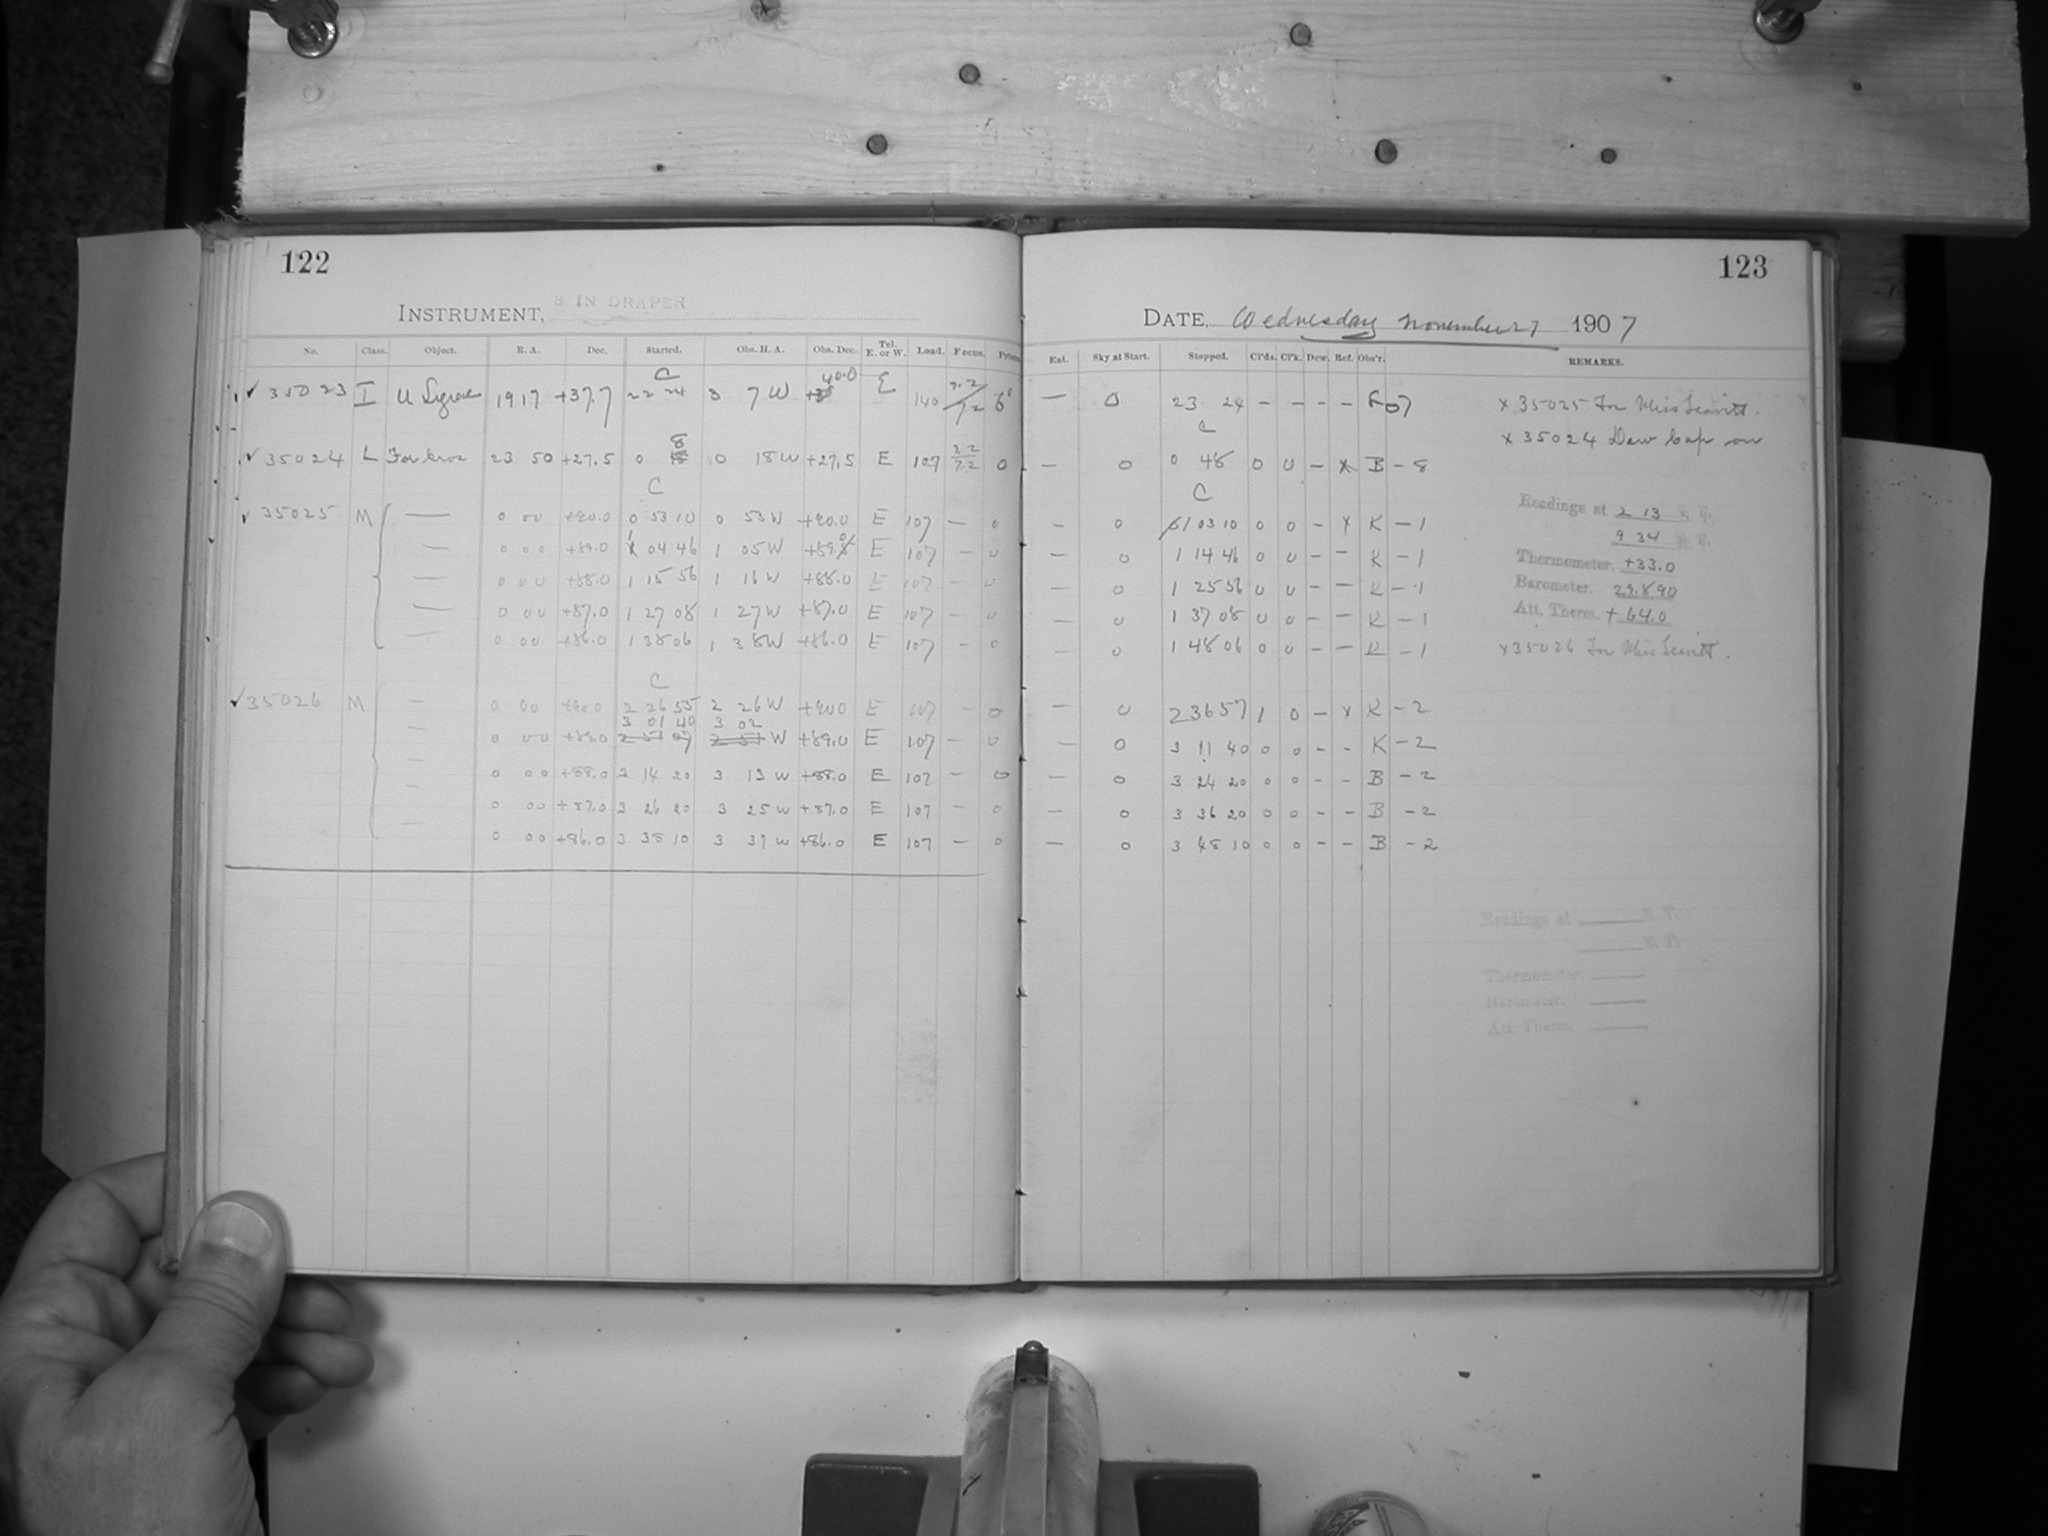 122
INSTRUMENT, 8 IN DRAPER
No. Class. Object. R. A. Dec. Started. Obs. H. A. Obs. Dec. Tel. E. or W. Load. Focus.
C 40.0
✓ 35023 I U Lyrae 19 17 +37.7 22 24 3 7 W E 140
8
✓ 35024 L 23 50 +27.5 0 0 18 W +27.5 E 107 2.2/7.2 0
C
✓ 35025 M — 0 00 +90.0 0 53 10 0 53 W +90.0 E 107 — 0
— 0 00 +89.0 1 04 46 1 05 W +89.0 E 107 — 0
— 0 00 +88.0 1 15 56 1 16 W +88.0 E 107 — 0
— 0 00 +87.0 1 27 08 1 27 W +87.0 E 107 — 0
— 0 00 +86.0 1 38 06 1 38 W +86.0 E 107 — 0
C
✓ 35026 M — 0 00 +90.0 2 26 55 2 26 W +90.0 E 107 — 0
3 01 40 3 02
— 0 00 +89.0 2 51 07 2 51 W +89.0 E 107 — 0
— 0 00 +88.0 3 14 20 3 13 W +88.0 E 107 — 0
— 0 00 +87.0 3 26 20 3 25 W +87.0 E 107 — 0
— 0 00 +86.0 3 38 10 3 37 W +86.0 E 107 — 0
123
DATE, Wednesday November 27 1907
Ext. Sky at Start. Stopped. Cl'ds. Cl'k. Dew. Ref. Obs'r. REMARKS.
— 0 23 24 – – – – 07 x 35025 For Miss Leavitt.
C
x 35024 Dew Cap on
— 0 0 48 0 0 – x B – 8
C
— 0 1 03 10 0 0 – x K – 1
0 1 14 46 0 0 – – K – 1
0 1 25 56 0 0 – – K – 1
0 1 37 08 0 0 – – K – 1
0 1 48 06 0 0 – – K – 1
Readings at 2 13 S. T.
9 34
Thermometer, +33.0
Barometer. 29.890
Att. Therm. +64.0
x 35026 For Miss Leavitt.
— 0 2 36 57 1 0 – x K – 2
— 0 3 11 40 0 0 – – K – 2
— 0 3 24 20 0 0 – – B – 2
— 0 3 36 20 0 0 – – B – 2
— 0 3 48 10 0 0 – – B – 2
Readings at S. T.
E. T.
Thermometer.
Barometer.
Att. Therm.